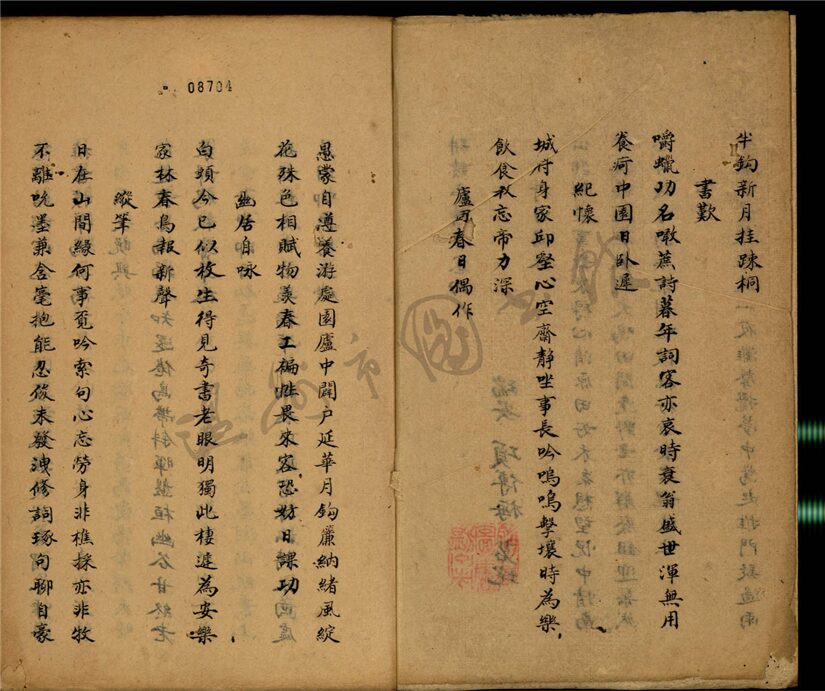 半鈎新月挂疎桐
書歎
嚼蠟功名噉蔗詩暮年詞客亦哀時衰翁盛世渾無用
養疴中園日卧遲
紀懷
城府身家邱壑心空齋静坐事長吟嗚嗚擊壤時為樂
飲食我忘帝力深
廬西春日偶作
愚蒙自遵養游處園廬中闢户延華月鈎簾納緒風綻
花殊色相賦物羨春工褊性畏來客恐妨日課功
幽居自咏
白頭今已似枚生得見奇書老眼明獨此棲遲為安樂
家林春鳥報新聲
縱筆
日在山間緣何事覓吟索句心忘勞身非樵採亦非牧
不離吮墨兼含毫抱能忍俊未發洩修詞琢句聊自豪
08704
温州市圖